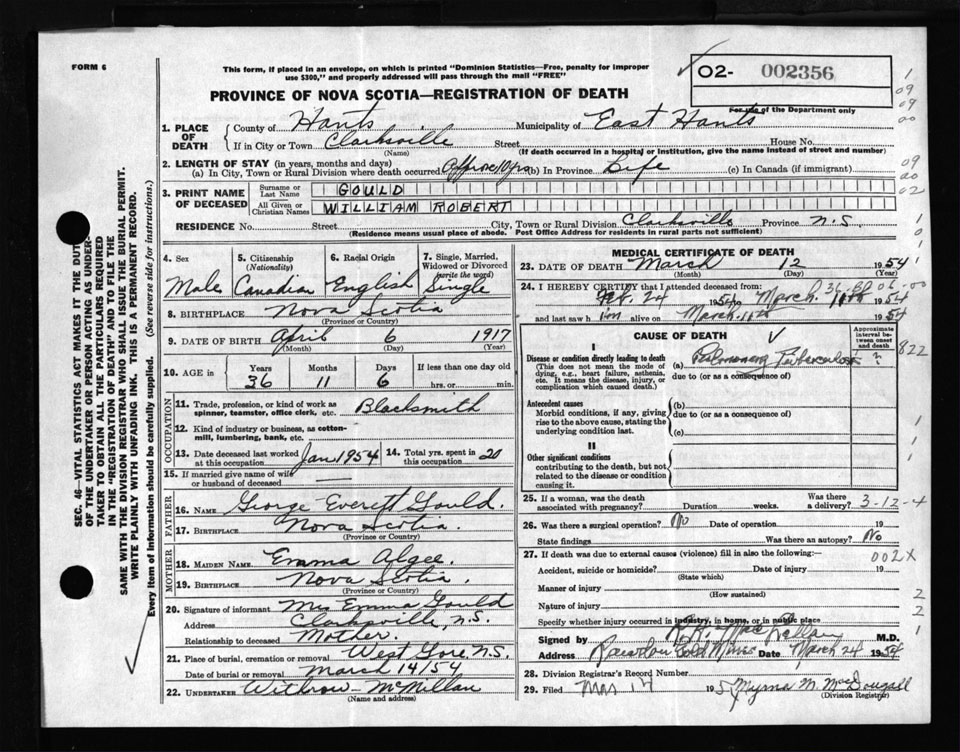 FORM 6
This form, if placed in an envelope, on which is printed "Dominion Statistics—Free, penalty for improper
use $300," and properly addressed will pass through the mail "FREE"
O2- 002356
For use of the Department only
PROVINCE OF NOVA SCOTIA—REGISTRATION OF DEATH
1. PLACE OF DEATH
County of Hants Municipality of East Hants
If in City or Town Clarksville Street House No.
(Name) (If death occurred in a hospital or institution, give the name instead of street and number)
2. LENGTH OF STAY (in years, months and days)
(a) In City, Town or Rural Division where death occurred Approx 10 yrs (b) In Province Life (c) In Canada (if immigrant)
3. PRINT NAME OF DECEASED
Surname or Last Name GOULD
All Given or Christian Names WILLIAM ROBERT
RESIDENCE No. Street City, Town or Rural Division Clarksville Province N.S.
(Residence means usual place of abode. Post Office Address for residents in rural parts not sufficient)
4. Sex Male
5. Citizenship (Nationality) Canadian
6. Racial Origin English
7. Single, Married, Widowed or Divorced (write the word) Single
8. BIRTHPLACE Nova Scotia
(Province or Country)
9. DATE OF BIRTH April 6 1917
(Month) (Day) (Year)
10. AGE in Years 36 Months 11 Days 6 If less than one day old hrs. or min.
OCCUPATION
11. Trade, profession, or kind of work as spinner, teamster, office clerk, etc. Blacksmith
12. Kind of industry or business, as cotton-mill, lumbering, bank, etc.
13. Date deceased last worked at this occupation Jan 1954
14. Total yrs. spent in this occupation 20
15. If married give name of wife or husband of deceased —
FATHER
16. NAME George Everett Gould
17. BIRTHPLACE Nova Scotia.
(Province or Country)
MOTHER
18. MAIDEN NAME Emma Algee.
19. BIRTHPLACE Nova Scotia.
(Province or Country)
20. Signature of informant Mrs Emma Gould
Address Clarksville, N.S.
Relationship to deceased Mother.
21. Place of burial, cremation or removal West Gore, N.S.
Date of burial or removal March 14/54
22. UNDERTAKER Withrow - McMillan
(Name and address)
MEDICAL CERTIFICATE OF DEATH
23. DATE OF DEATH March 12 1954
(Month) (Day) (Year)
24. I HEREBY CERTIFY that I attended deceased from:
Feb. 24 1954 to March 11th 1954
and last saw him alive on March 11th 1954
CAUSE OF DEATH
Approximate interval between onset and death
I
Disease or condition directly leading to death
(This does not mean the mode of dying, e.g., heart failure, asthenia, etc. It means the disease, injury, or complication which caused death.)
(a) Pulmonary Tuberculosis ?
due to (or as a consequence of)
Antecedent causes
Morbid conditions, if any, giving rise to the above cause, stating the underlying condition last.
(b)
due to (or as consequence of)
(c)
II
Other significant conditions
contributing to the death, but not related to the disease or condition causing it.
25. If a woman, was the death associated with pregnancy? Duration weeks. Was there a delivery? 3-12-4
26. Was there a surgical operation? No Date of operation 19
State findings Was there an autopsy? No
27. If death was due to external causes (violence) fill in also the following:— 002X
Accident, suicide or homicide? Date of injury 19
(State which)
Manner of injury
(How sustained)
Nature of injury
Specify whether injury occurred in industry, in home, or in public place
Signed by MacLellan M.D.
Address Rawdon Gold Mines Date March 24 1954
28. Division Registrar's Record Number
29. Filed Mar 17 195 Myrna M. MacDougall
(Division Registrar)
SEC. 46—VITAL STATISTICS ACT MAKES IT THE DUTY
OF THE UNDERTAKER OR PERSON ACTING AS UNDER-
TAKER TO OBTAIN ALL THE PARTICULARS REQUIRED
IN THE "REGISTRATION OF DEATH" AND TO FILE THE
SAME WITH THE DIVISION REGISTRAR WHO SHALL ISSUE THE BURIAL PERMIT.
WRITE PLAINLY WITH UNFADING INK. THIS IS A PERMANENT RECORD.
Every item of information should be carefully supplied. (See reverse side for instructions.)